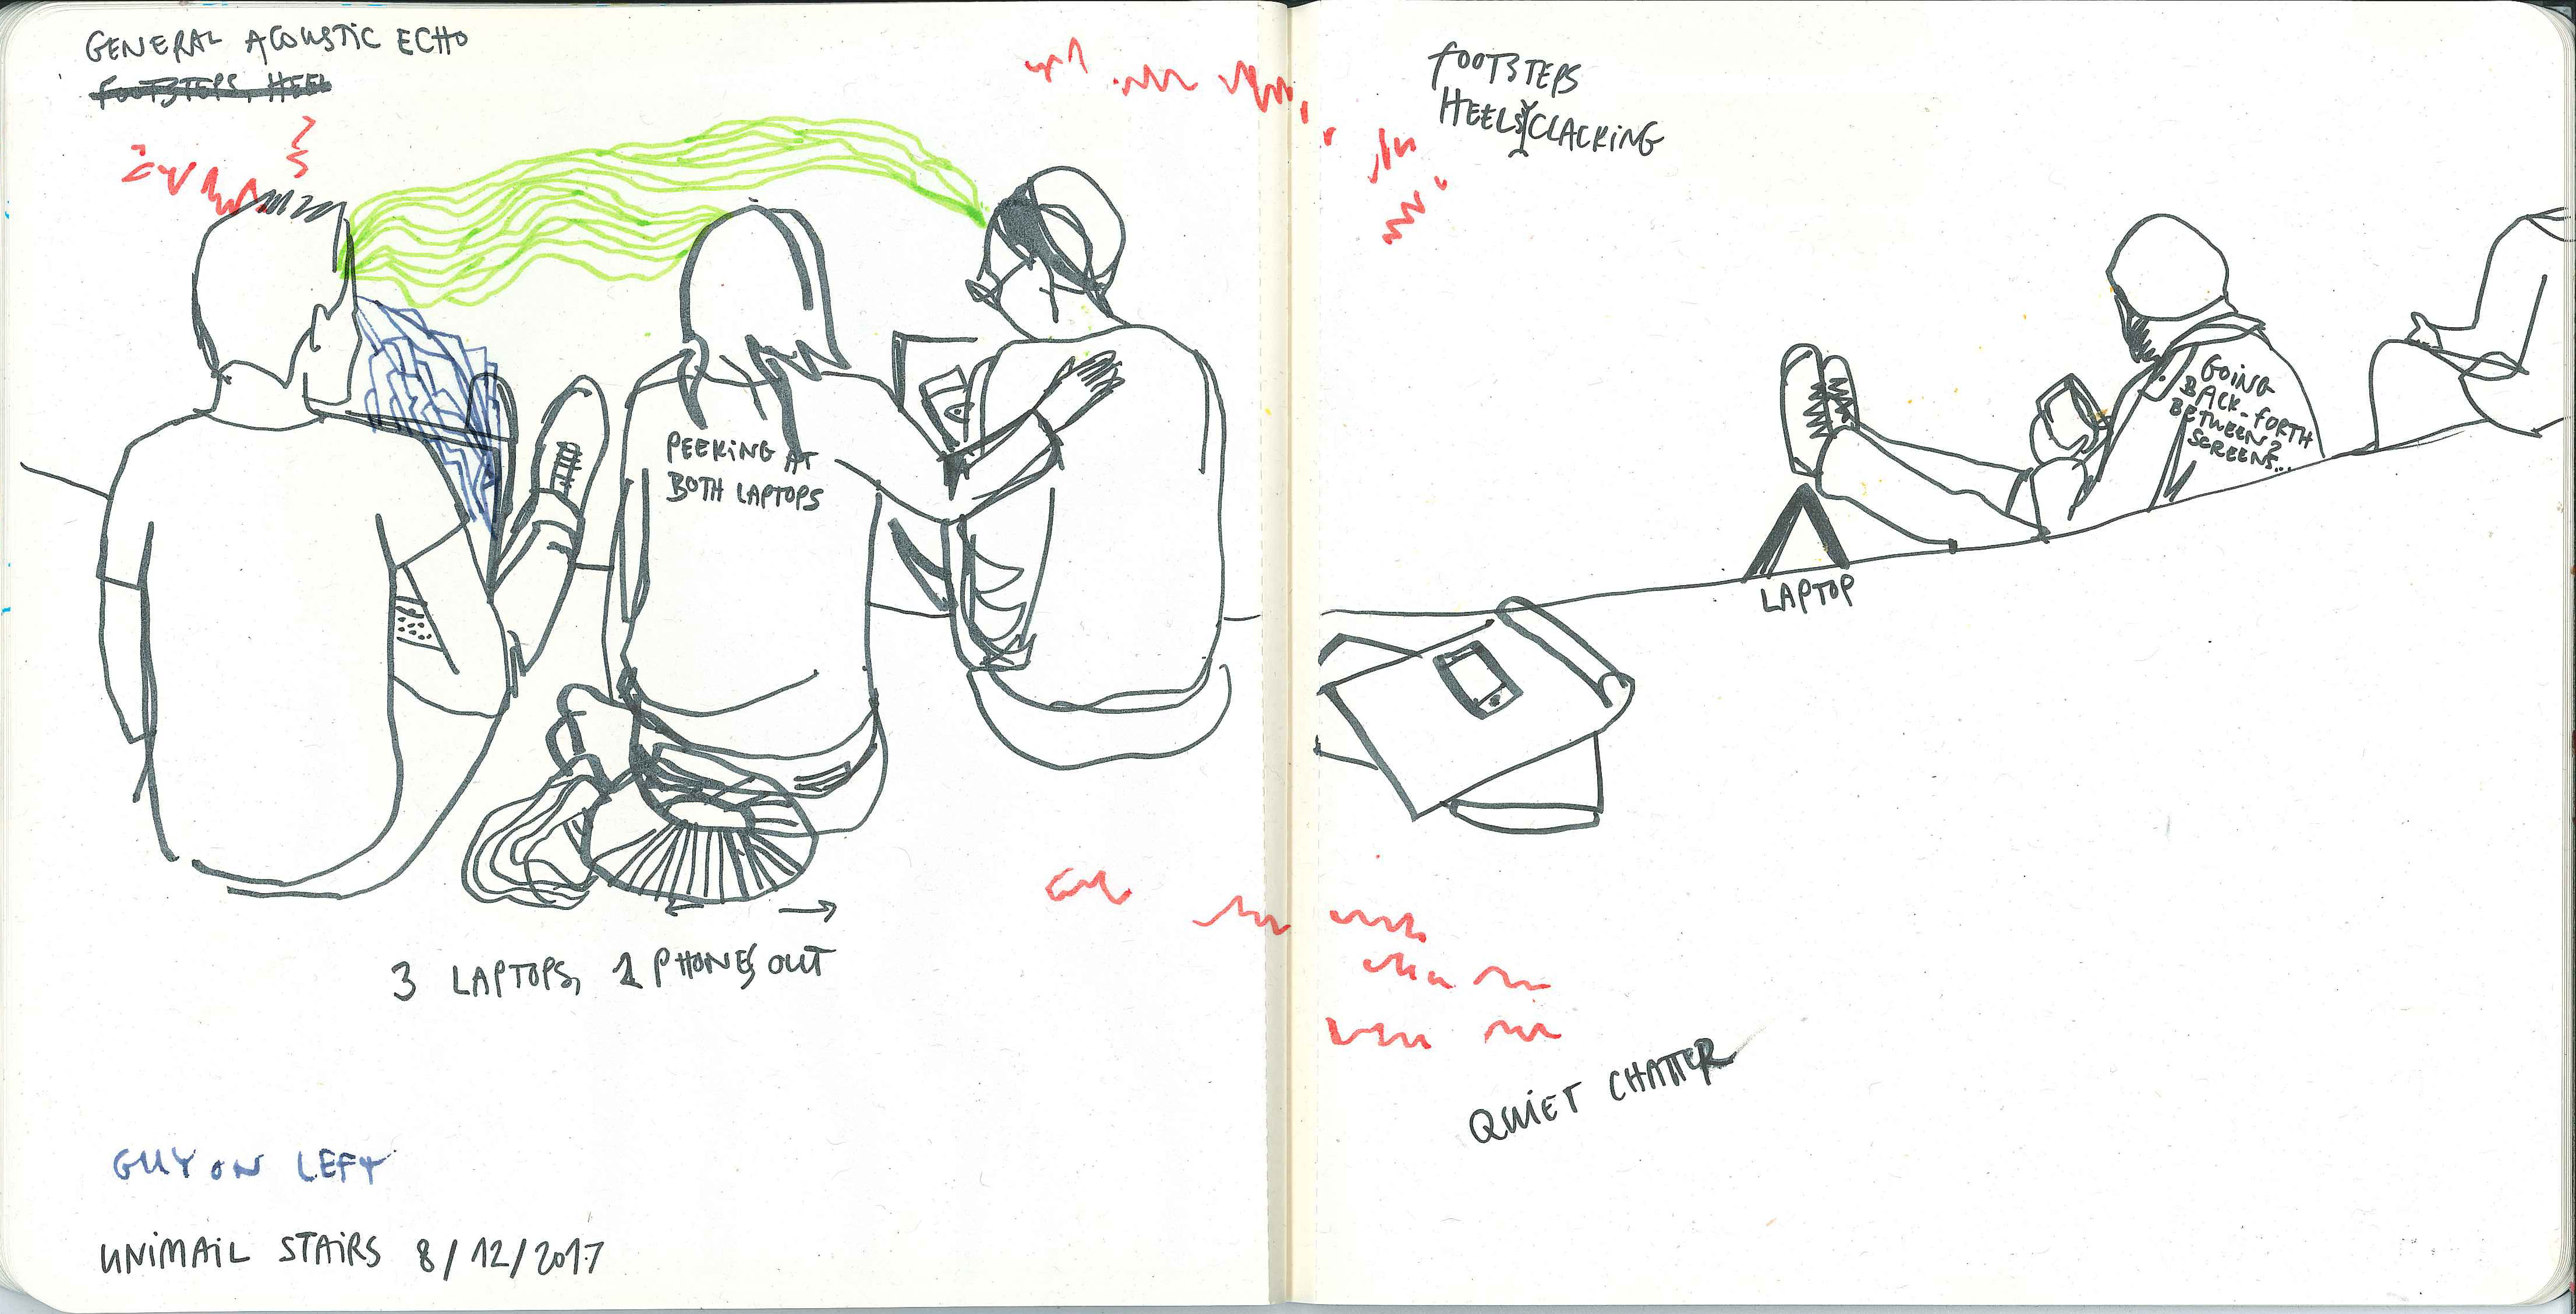 GENERAL ACOUSTIC ECHO
FOOTSTEPS, HEEL
PEEKING AT
BOTH LAPTOPS
3 LAPTOPS, 2 PHONES OUT
GUY ON LEFT
UNIMAIL STAIRS 8/12/2017
FOOTSTEPS
HEELS CLACKING
GOING
BACK-FORTH
BETWEEN 2
SCREENS...
LAPTOP
QUIET CHATTER